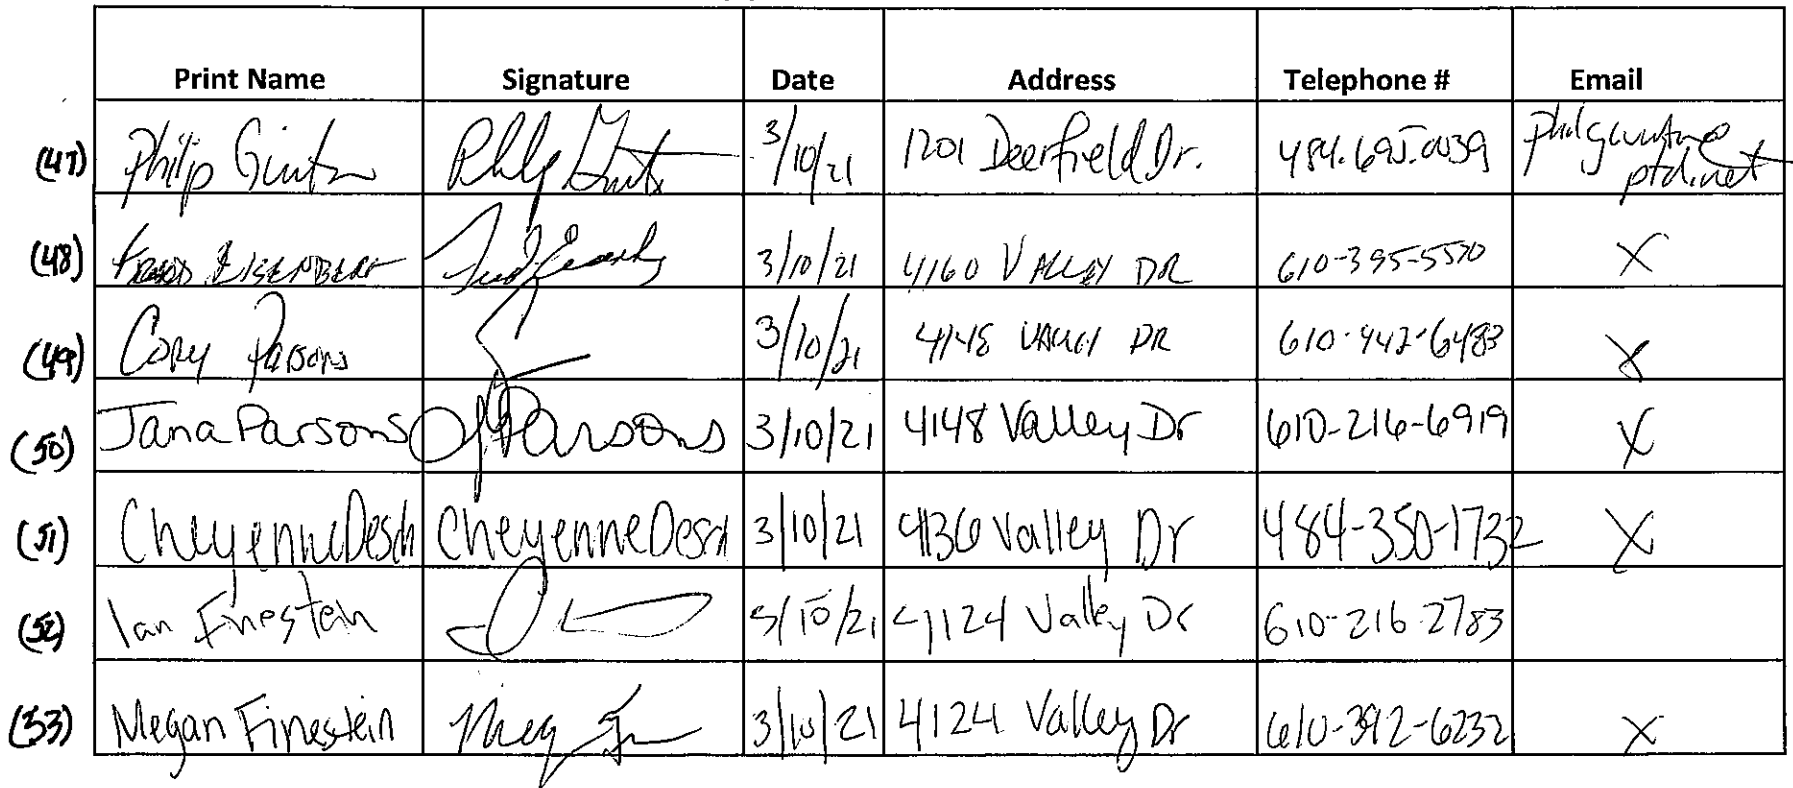 Print Name Signature Date Address Telephone # Email
(47) Philip Gintz 3/10/21 1201 Deerfield Dr. ptd.net
(48) EISENBERG 3/10/21 4160 VALLEY DR 610-395-5570 X
(49) Cory Parsons 3/10/21 4148 VALLEY DR 610-442-6483 X
(50) Jana Parsons JParsons 3/10/21 4148 Valley Dr 610-216-6919 X
(51) Cheyenne Desch Cheyenne Desch 3/10/21 4136 Valley Dr 484-350-1732 X
(52) Ian Finestein 3/10/21 4124 Valley Dr 610-216-2783
(53) Megan Finestein 3/10/21 4124 Valley Dr 610-392-6232 X